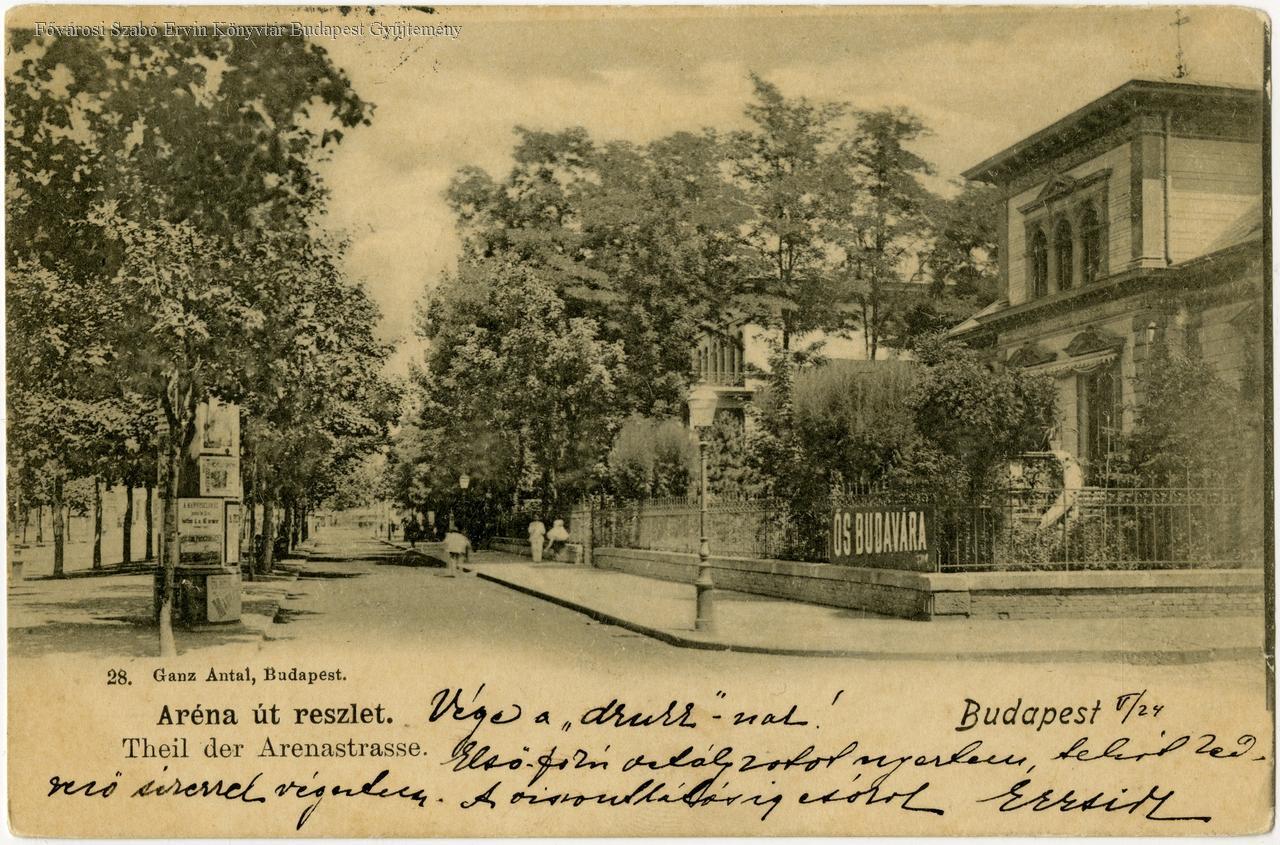 Fővárosi Szabó Ervin Könyvtár Budapest Gyűjtemény
ŐS BUDAVÁRA
28. Ganz Antal, Budapest.
Aréna út reszlet. Vége a „drukk"-nak! Budapest V/24
Theil der Arenastrasse. Első-fokú osztályzatot nyertem, tehát
sikerrel végeztem. A viszontlátásig csókol